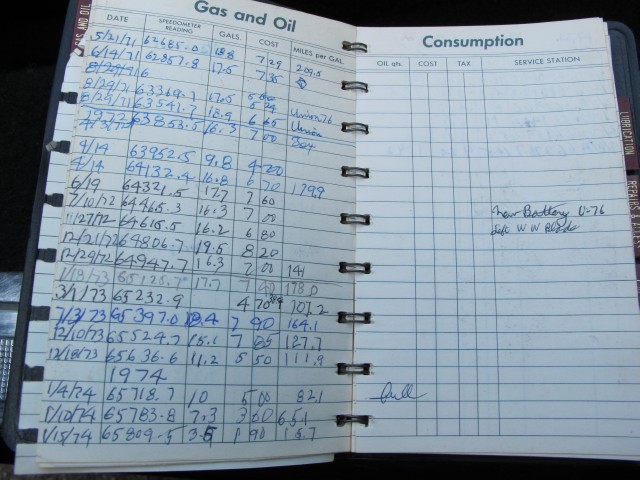 Gas and Oil
DATE SPEEDOMETER READING GALS. COST MILES per GAL.
5/21/71 64685.0 18.8 7 29 209.5
6/19/71 62857.8 17.5 7 35
8/29/71 6
8/29/71 63369.1 17.5 Union 76
8/29/71 63541.7 18.5 6 65 Union
63853.5 16.3 7 00
4/14 63952.5 9.8 4 20
4/14 64132.4 16.8 6 70 179.9
6/19 64321.5 17.7 7 60
7/10/72 64465.3 16.3 7 00
11/27/72 64615.5 16.2 6 80
12/21/72 64806.7 19.5 8 20
12/29/72 64947.7 16.3 7 00 141
1/13/73 65125.7 17.7 7 40 178.0
3/1/73 65232.9 4 70 107.2
7/3/73 65397.0 18.4 7 90 164.1
12/10/73 65524.7 15.1 7 05 127.7
12/18/73 65636.6 11.2 5 50 111.9
1974
1/4/74 65718.7 10 5 00 82.1
1/10/74 65783.8 7.3 3 60 65.1
1/15/74 65809.5 3.5 1 90
Consumption
OIL qts. COST TAX SERVICE STATION
New Battery U-76
left W W Blade
full
LUBRICATION
REPAIRS